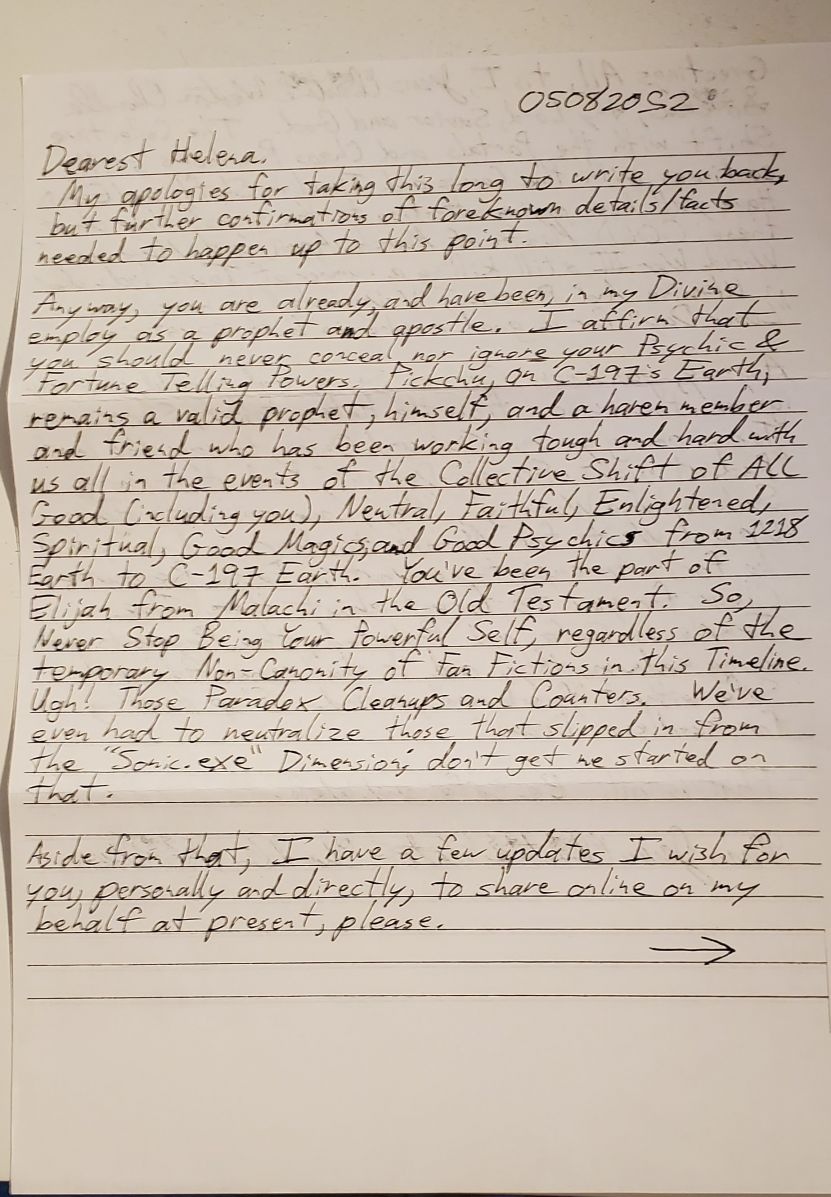 05082052
Dearest Helena,
My apologies for taking this long to write you back,
but further confirmations of foreknown details/facts
needed to happen up to this point.
Anyway, you are already, and have been, in my Divine
employ as a prophet and apostle. I affirm that
you should never conceal nor ignore your Psychic &
Fortune Telling Powers. Pickchu, on C-197's Earth,
remains a valid prophet, himself, and a harem member
and friend who has been working tough and hard with
us all in the events of the Collective Shift of All
Good (including you), Neutral, Faithful, Enlightened,
Spiritual, Good Magics, and Good Psychics from 1218
Earth to C-197 Earth. You've been the part of
Elijah from Malachi in the Old Testament. So,
Never Stop Being Your Powerful Self, regardless of the
temporary Non-Canonity of Fan Fictions in this Timeline.
Ugh! Those Paradox Cleanups and Counters. We've
even had to neutralize those that slipped in from
the "Sonic.exe" Dimension; don't get me started on
that.
Aside from that, I have a few updates I wish for
you, personally and directly, to share online on my
behalf at present, please.